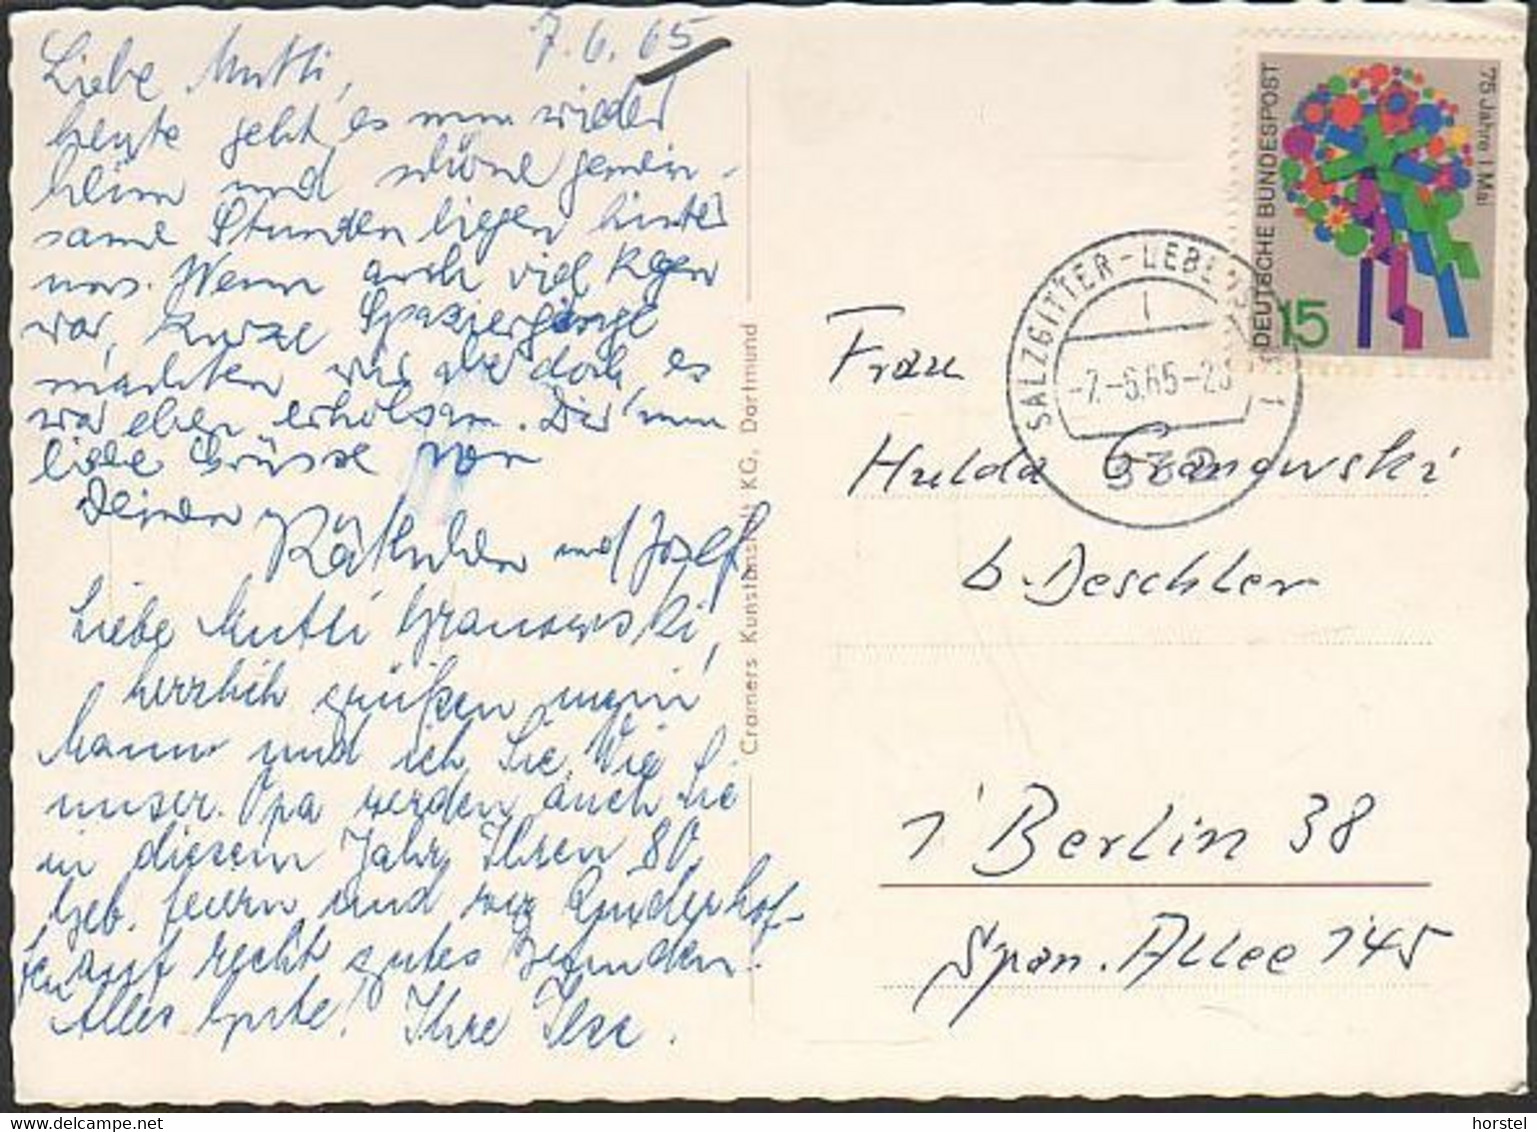 7.6.65
Liebe Mutti,
heute geht es nun wieder
heim und schöne gemein-
same Stunden liegen hinter
uns. Wenn auch viel Regen
war, kurze Spaziergänge
machten wir aber doch, es
war eben erholsam. Dir nun
liebe Grüsse von
Deinen
Käthchen und Josef
Liebe Mutti Granowski,
herzlich grüßen mein
Mann und ich Sie. Wie
unser Opa werden auch Sie
in diesem Jahr Ihren 80.
Geb. feiern und wir
auf recht gutes
Alles Gute! Ihre Ilse.
Cramers Kunstanstalt KG, Dortmund
DEUTSCHE BUNDESPOST
75 Jahre 1 Mai
15
SALZGITTER-LEBENSTEDT 1
-7.-6.65-20
332
Frau
Hulda Granowski
b. Deschler
1 Berlin 38
Span. Allee 145
horstel